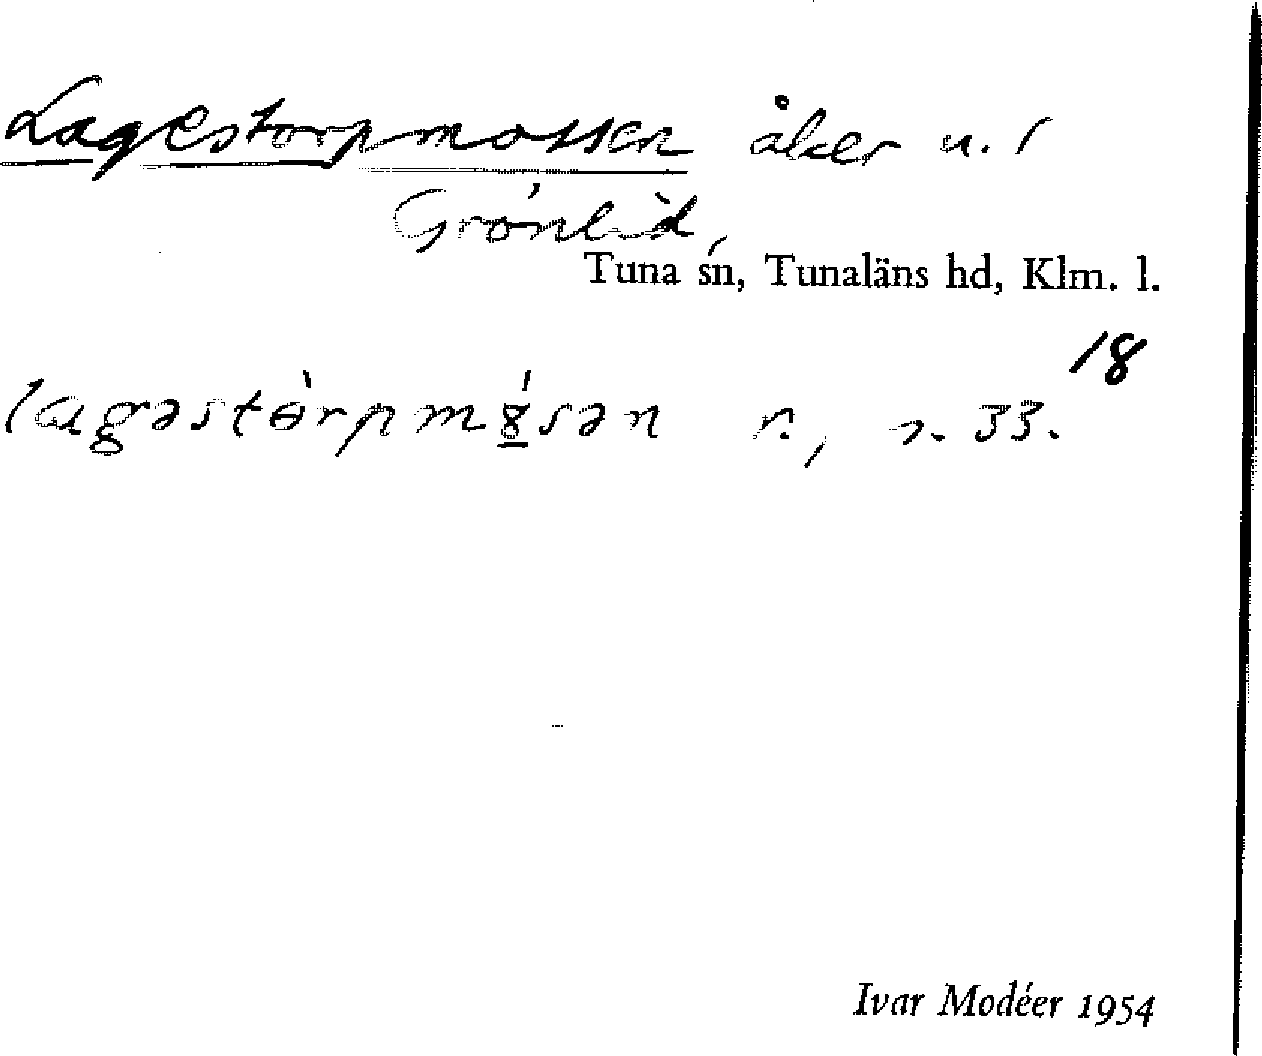 Lagestorpmossen åker u. 1
Grönlid,
Tuna sn, Tunaläns hd, Klm. l.
18
lagəstɵ̀rpmɣ́sən r., s. 33.
Ivar Modéer 1954